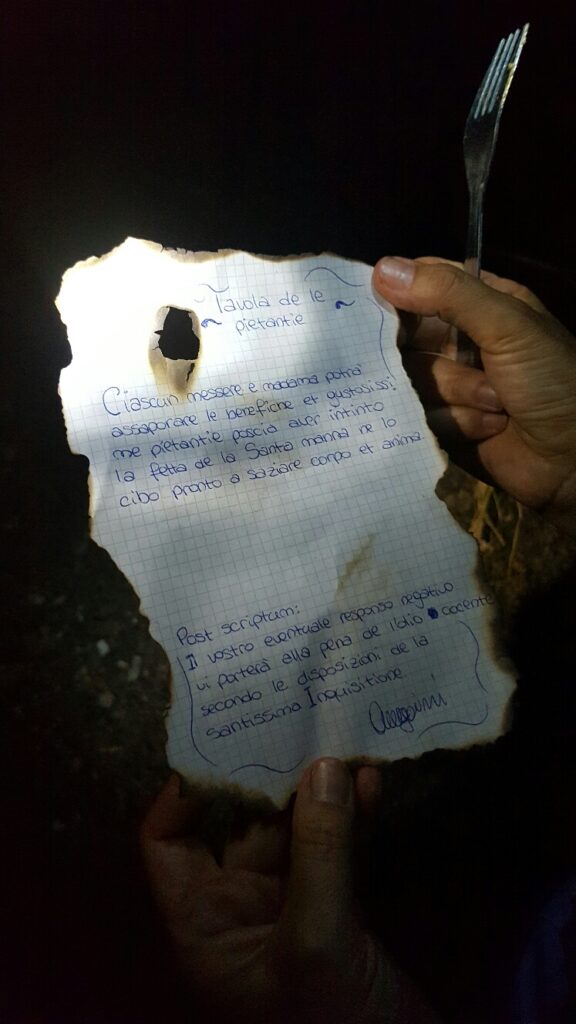 Tavola de le
pietantie
Ciascun messere e madama potrà
assaporare le benefiche et gustosissi
me pietantie poscia aver intinto
la fetta de la Santa manna ne lo
cibo pronto a saziare corpo et anima
Post scriptum:
Il vostro eventuale responso negativo
vi porterà alla pena de l'olio cocente
secondo le disposizioni de la
santissima Inquisitione.